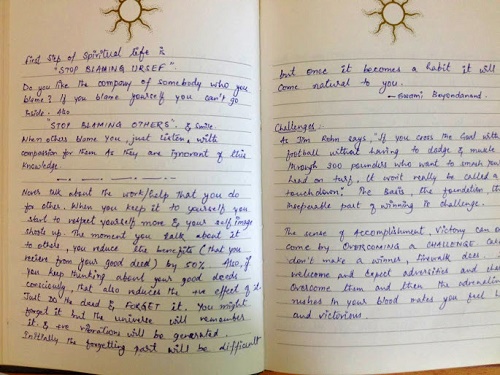 First Step of Spiritual Life is
"STOP BLAMING URSEF".
Do you like the company of somebody who you
blame? If you blame yourself you can't go
inside. Also
"STOP BLAMING OTHERS". & Smile.
When others blame you, just listen, with
compassion for them as they are ignorant of this
knowledge.
Never talk about the work/help that you do
for other. When you keep it to yourself you
start to respect yourself more & your self image
shoots up. The moment you talk about it
to others, you reduce its benefits (that you
recieve from your good deed) by 50% Also, if
you keep thinking about your good deeds
conciously, that also reduces the +ve effect of it.
Just Do the deed & FORGET it. You might
forget it but the universe will remember
it & +ve vibrations will be generated.
Initially the forgetting part will be difficult
but once it becomes a habit it will
come natural to you.
Swami
Challenges
As Jim Rohn says, "If you cross the Goal with
football without having to dodge & muscle
through 300 pounders who want to smash your
head on turf, it won't really be called a
touchdown". The Basis, the foundation, the
inseparable part of winning is challenge.
The sense of Accomplishment, Victory can on
come by OVERCOMING A CHALLENGE.
don't make a winner, firewalk does.
welcome and expect adversities and
Overcome them and then the adrenalin
rushes in your blood makes you feel
and victorious.